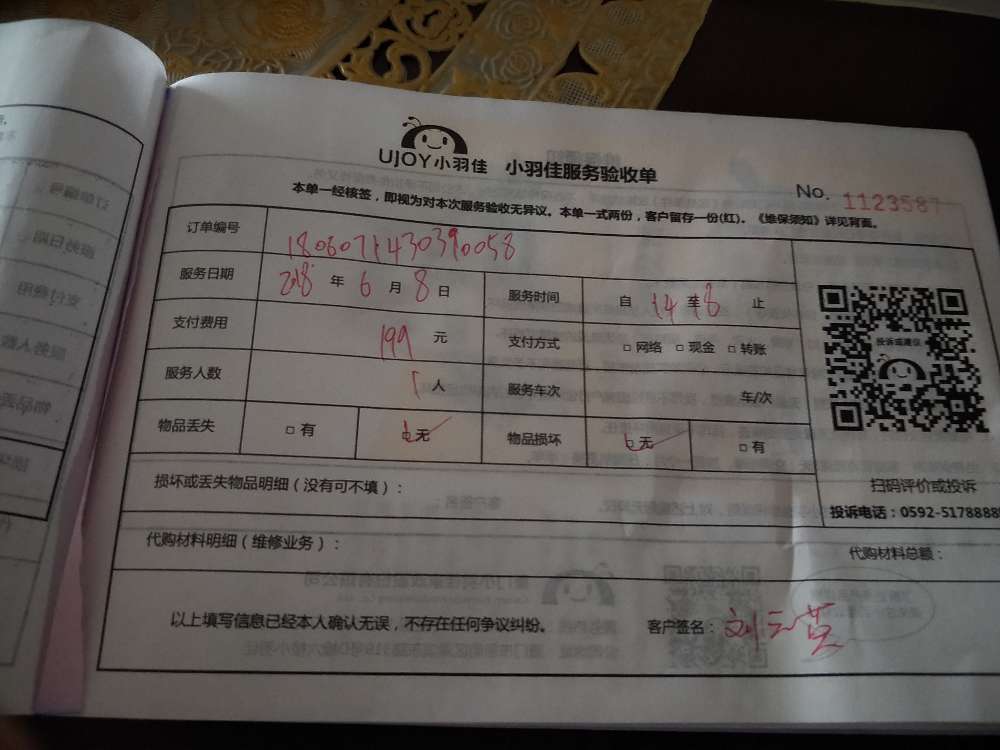 UJOY小羽佳 小羽佳服务验收单
No. 1123587
本单一经核签，即视为对本次服务验收无异议。本单一式两份，客户留存一份(红)。《维保须知》详见背面。
订单编号 1806071430390058
服务日期 2018年6月8日 服务时间 自14至18止
支付费用 199元 支付方式 □网络 □现金 □转账
服务人数 1人 服务车次 车/次
物品丢失 □有 ☑无 物品损坏 ☑无 □有
投诉或建议
扫码评价或投诉
投诉电话：0592-5178888
损坏或丢失物品明细（没有可不填）：
代购材料明细（维修业务）： 代购材料总额：
以上填写信息已经本人确认无误，不存在任何争议纠纷。 客户签名：刘云